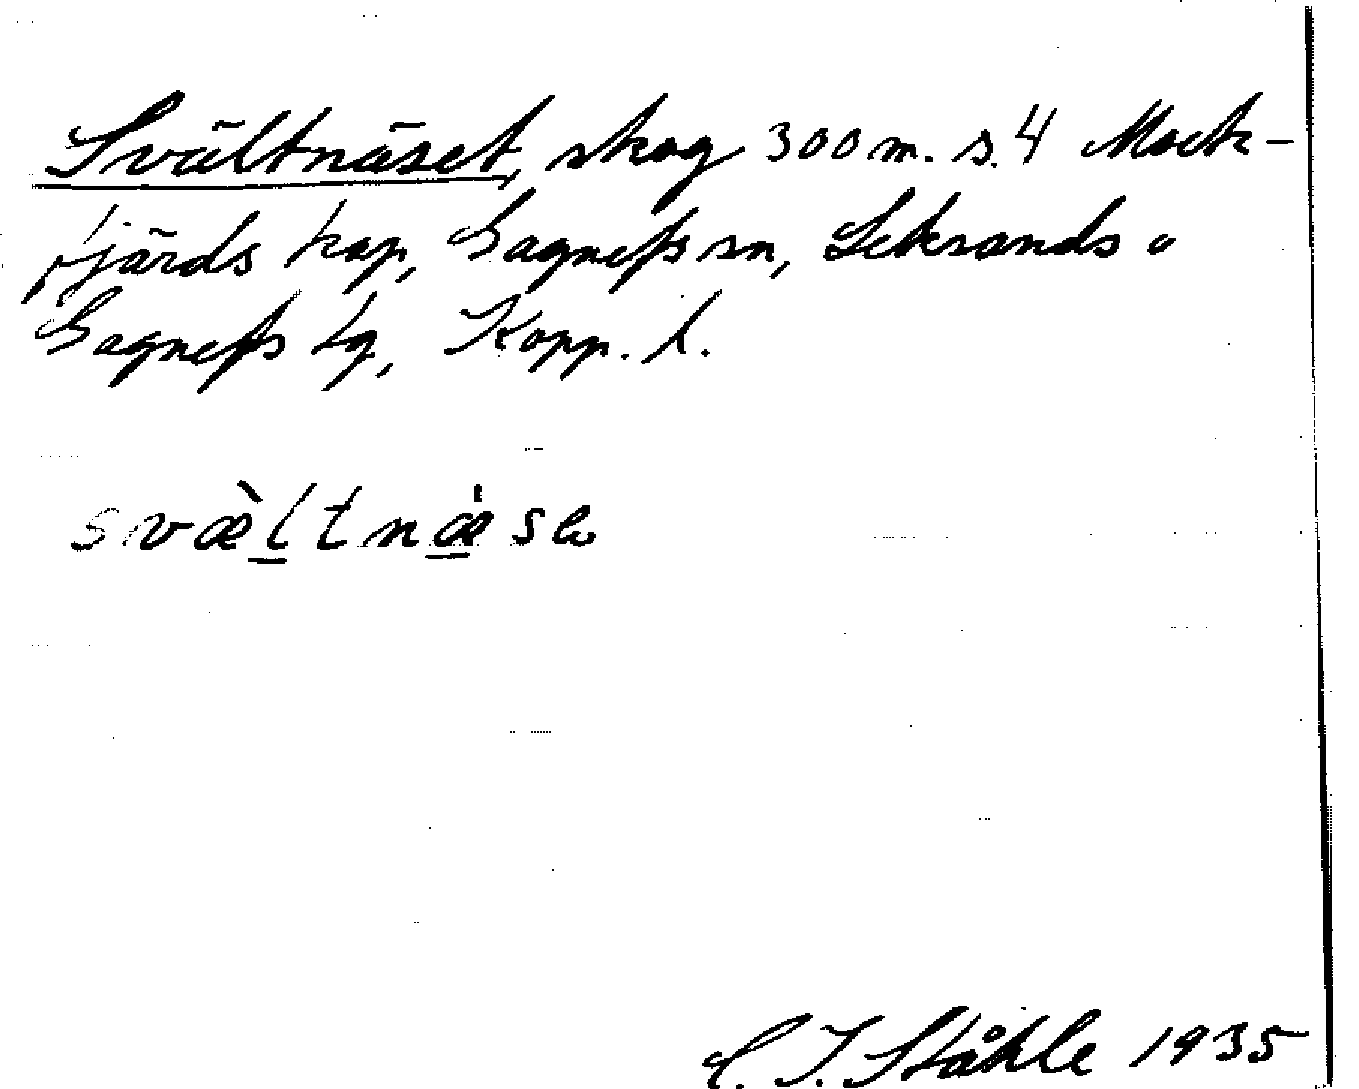 Svältnäset, skog 300 m. s. 4 Mock-
fjärds kap, Gagnefs sn, Leksands o
Gagnefs tg, Kopp. l.
svæ̀ltnæ̍sə
C. I. Ståhle 1935